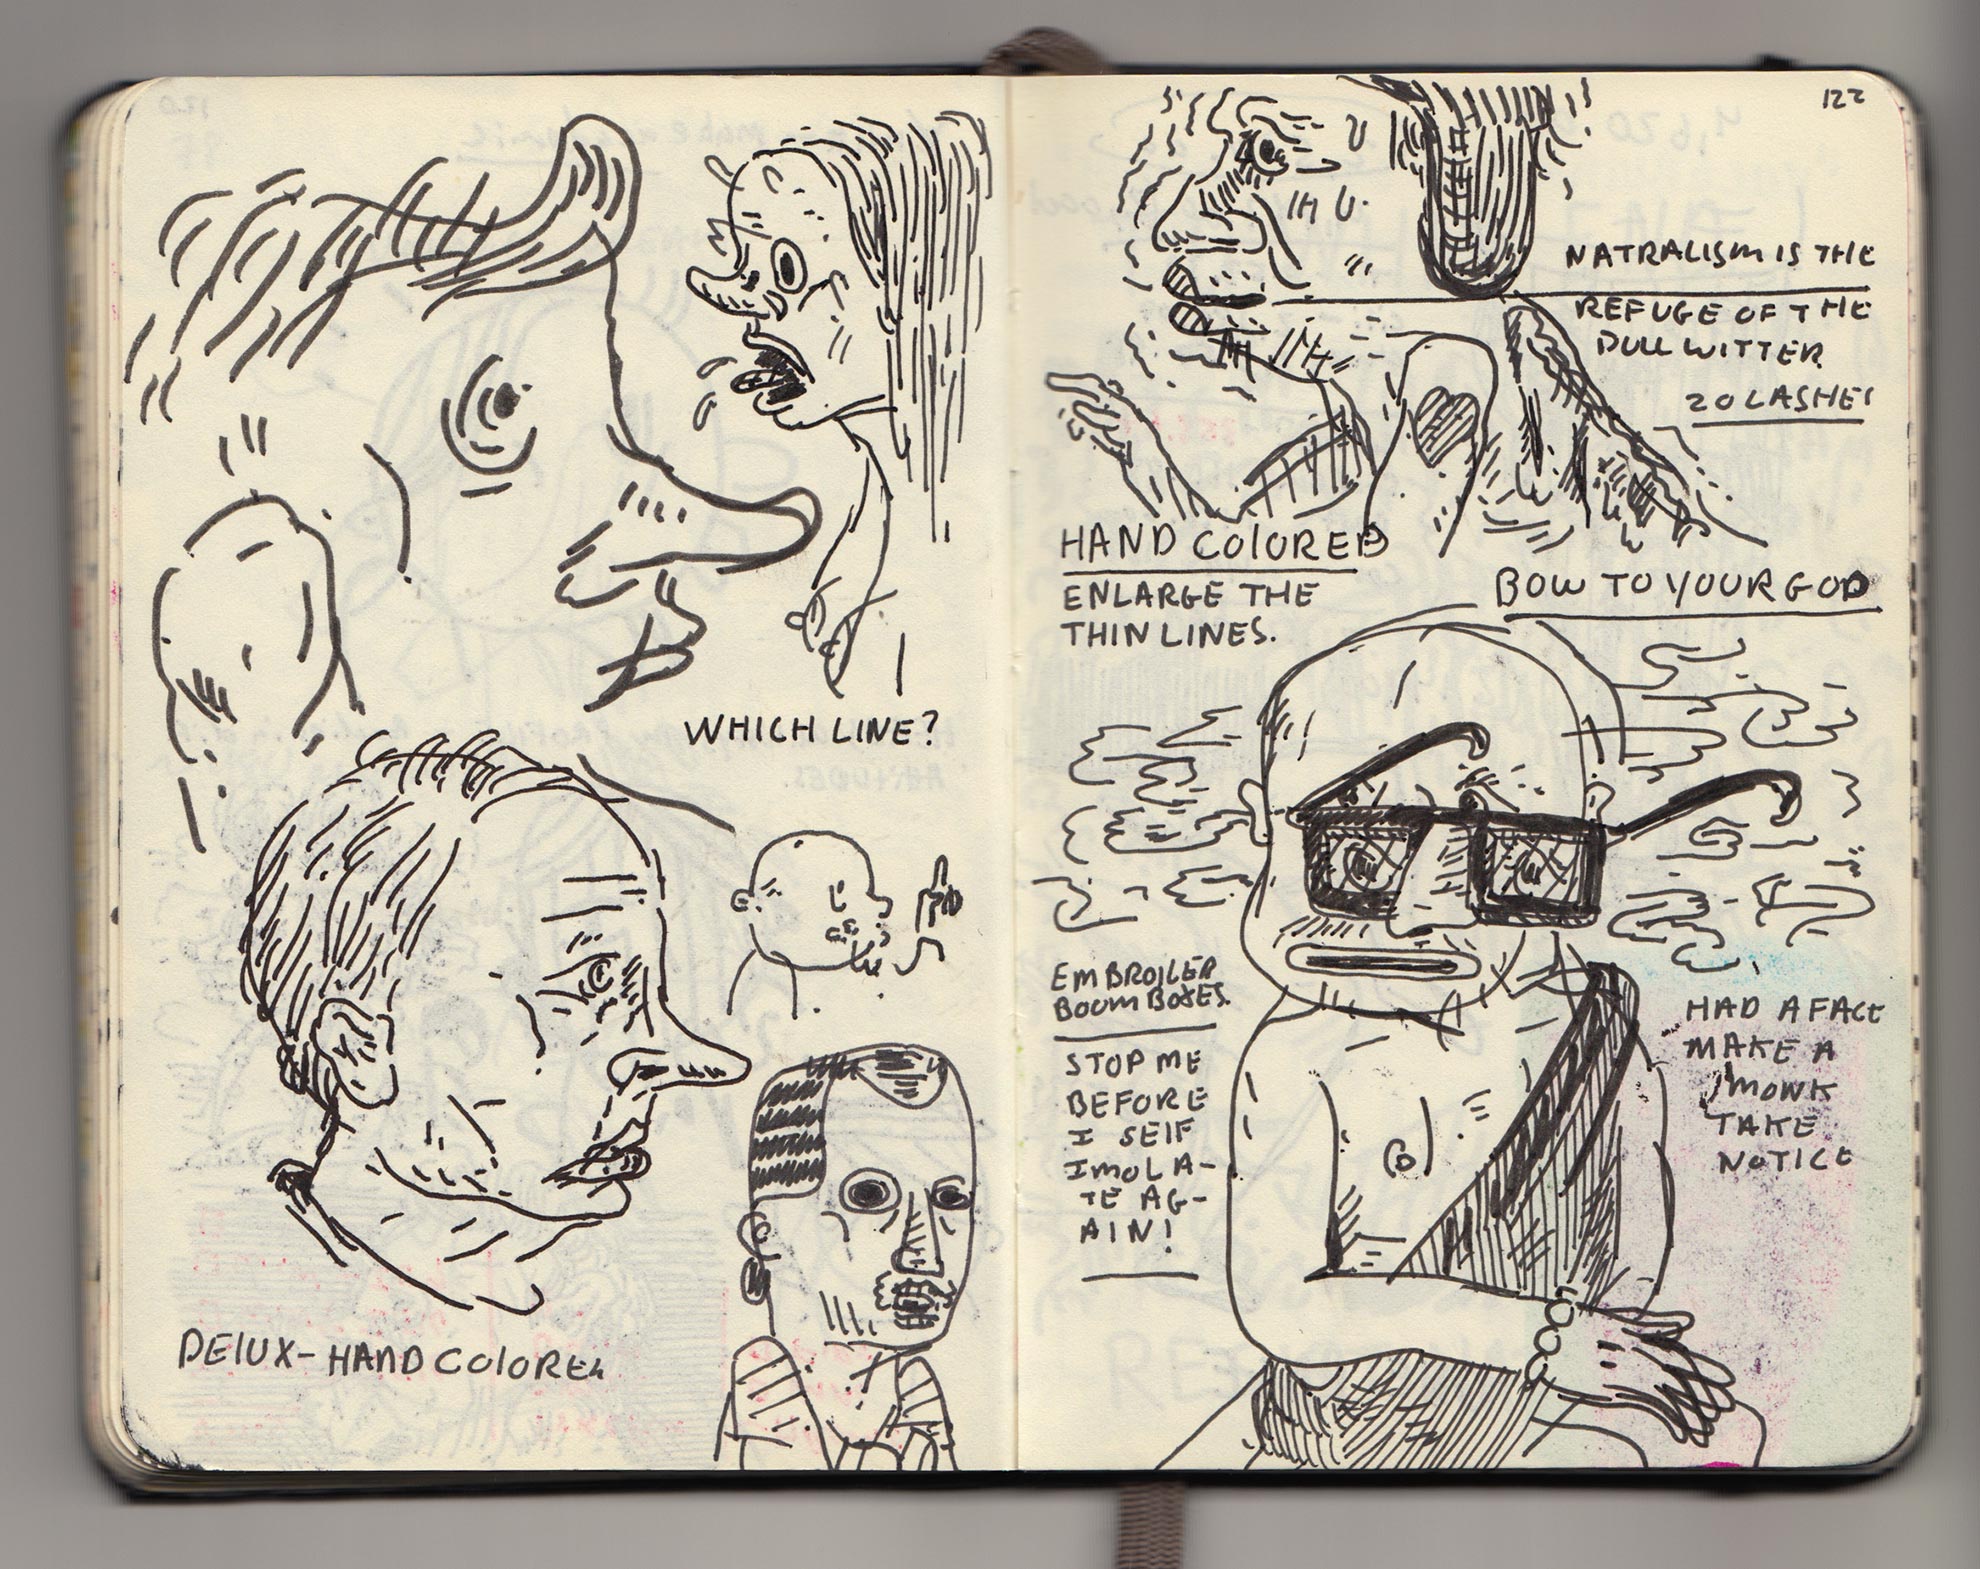 WHICH LINE?
DELUX-HAND COLORED
122
NATRALISM IS THE
REFUGE OF THE
DULL WITTER
20 LASHES
HAND COLORED
ENLARGE THE
THIN LINES.
BOW TO YOUR GOD
EMBROILER
BOOM BOXES.
STOP ME
BEFORE
I SELF
IMOLA-
TE AG-
AIN!
HAD A FACE
MAKE A
MONK
TAKE
NOTICE